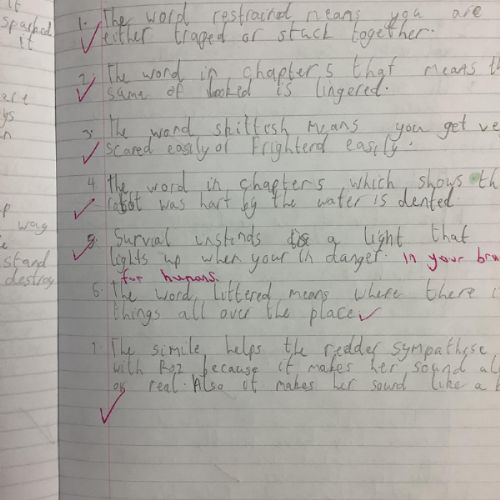 it
spached
it
are
ys
n
p wag
e
stand
destroy
1. The word restrained means you are
either traped or stuck together.
2. The word in chapter 5 that means th
same of looked is lingered.
3. The word skittesh means you get ve
scared easily or Frighterd easily.
4. The word in chapter 5 which shows th
robot was hart by the water is dented
5. Survial instinds is a light that
lights up when your in danger. in your bra
for humans.
6. The word littered means where there i
things all over the place
7. The simile helps the redder sympathise
with Roz because it makes her sound ali
or real. Also ot makes her sound like a b